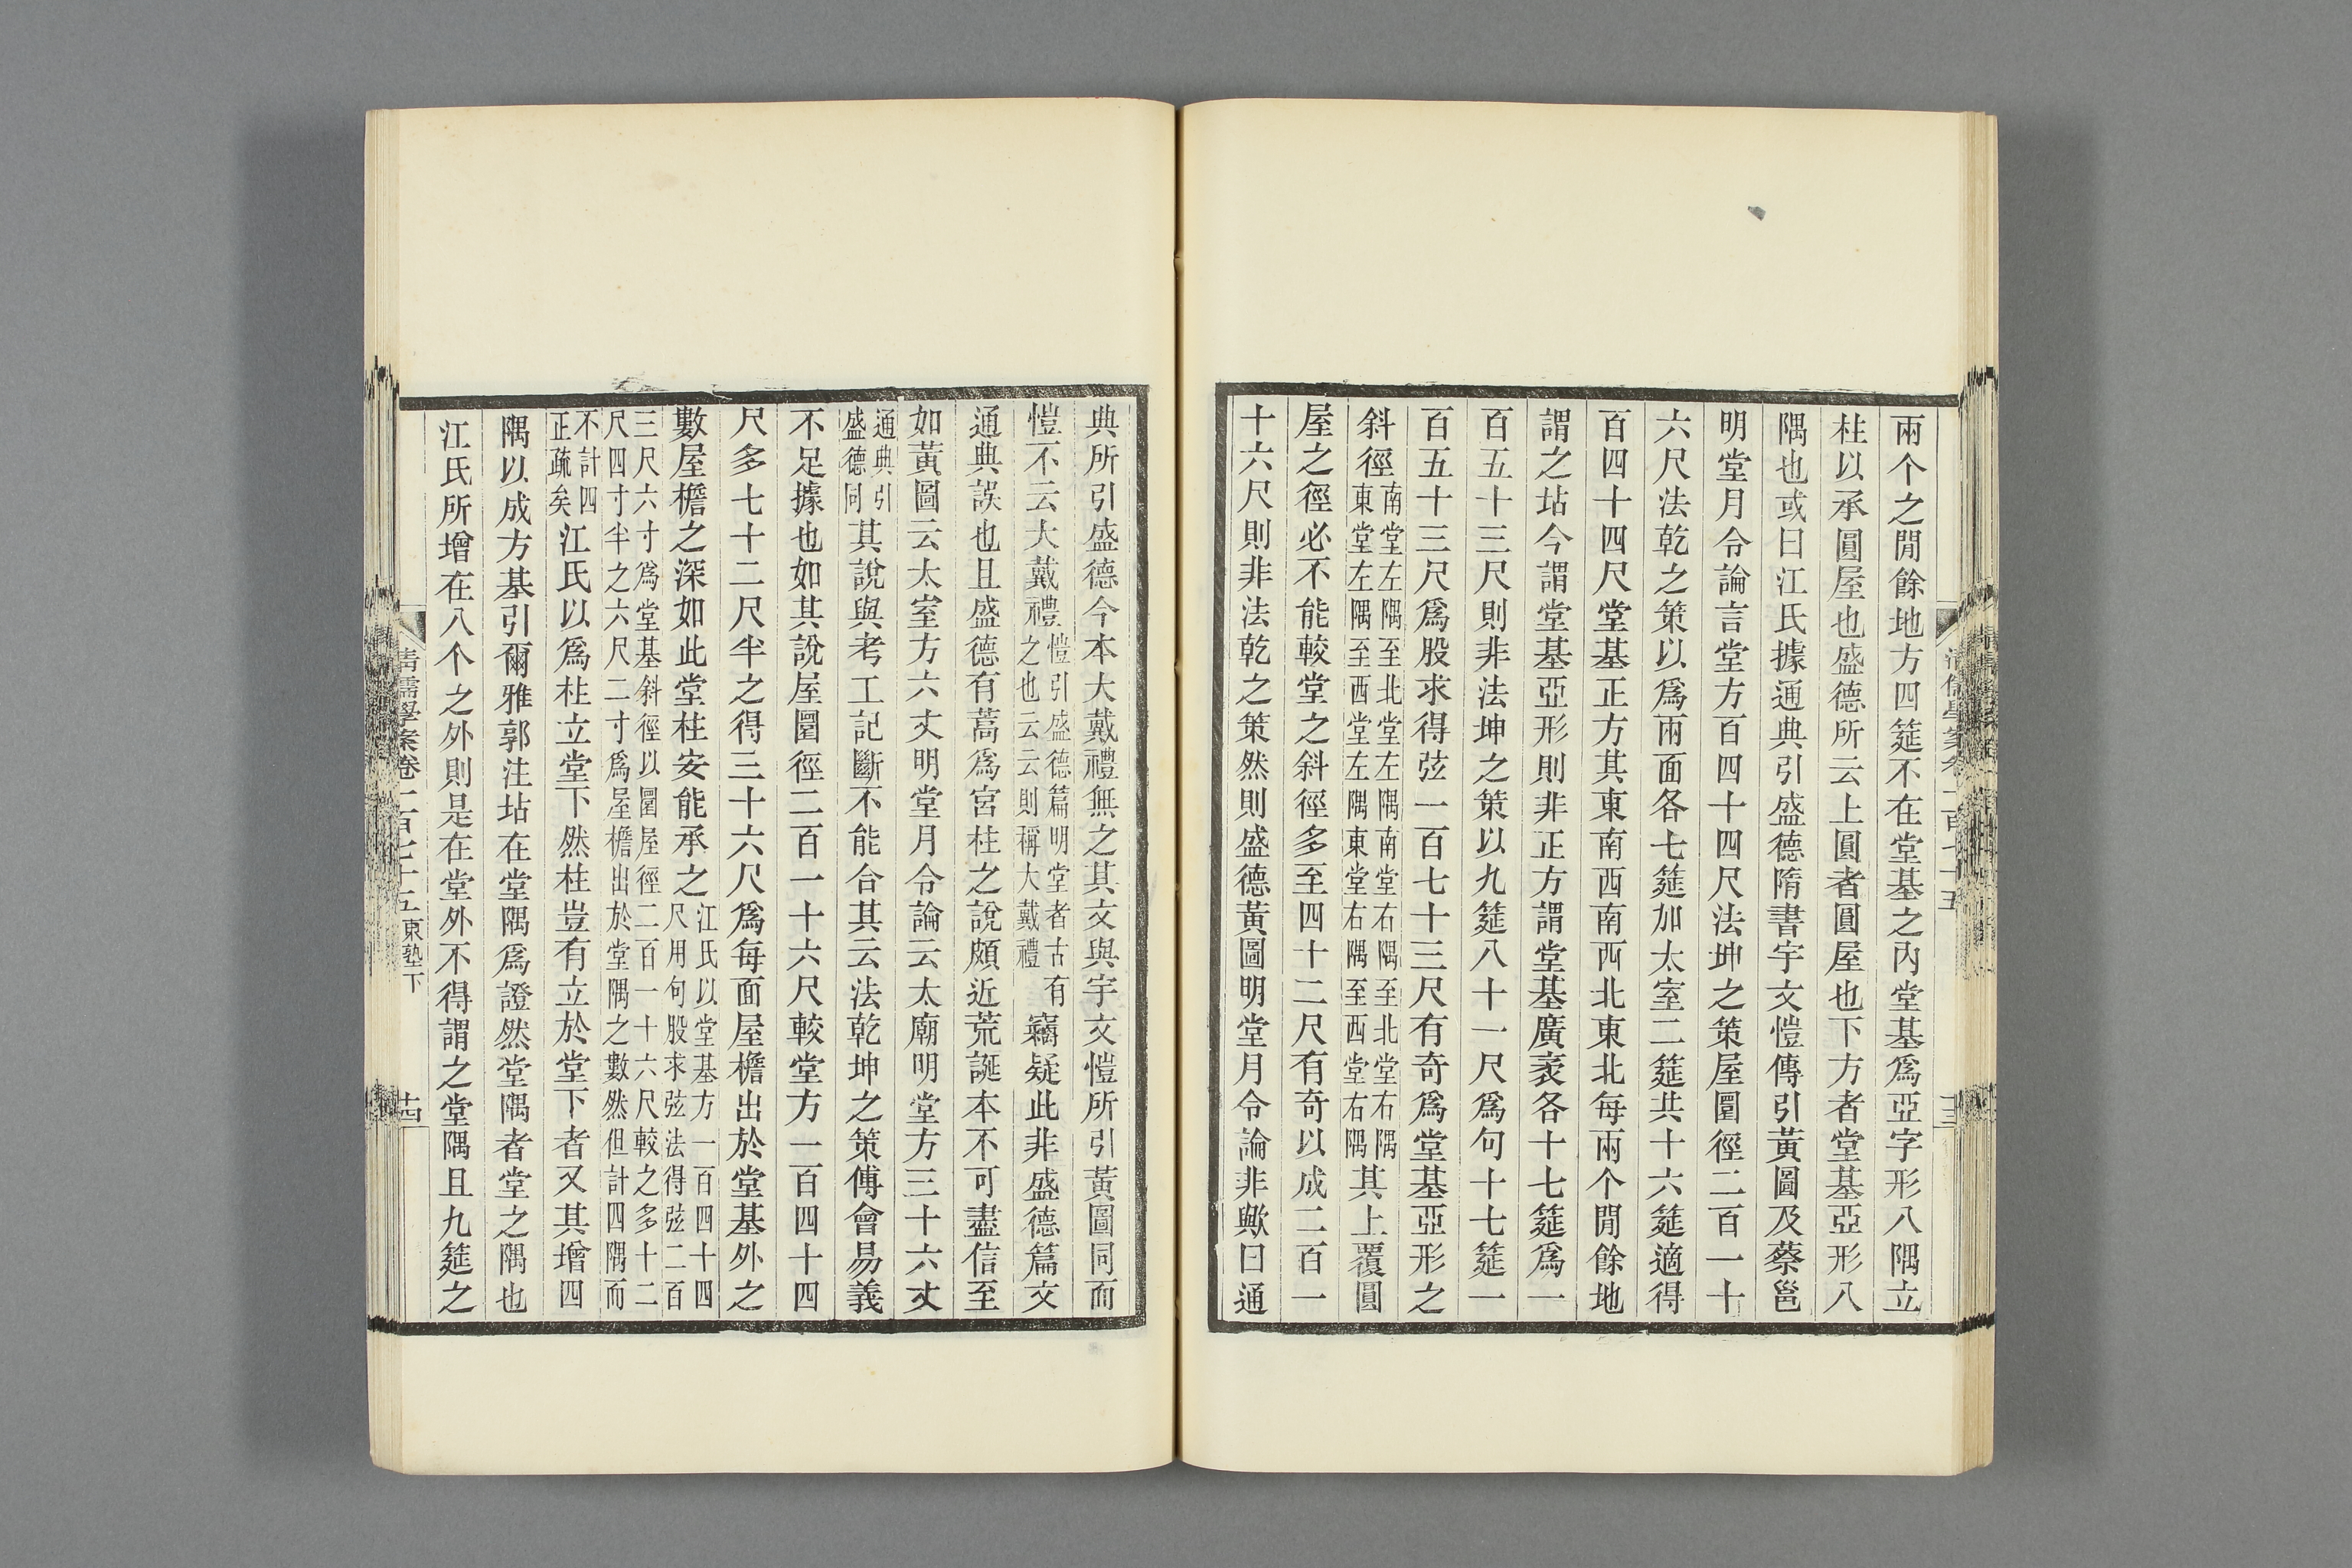 兩个之閒餘地方四筵不在堂基之內堂基爲亞字形八隅立
柱以承圓屋也盛德所云上圓者圓屋也下方者堂基亞形八
隅也或曰江氏據通典引盛德隋書宇文愷傳引黃圖及蔡邕
明堂月令論言堂方百四十四尺法坤之策屋圜徑二百一十
六尺法乾之策以爲兩面各七筵加太室二筵共十六筵適得
百四十四尺堂基正方其東南西南西北東北每兩个閒餘地
謂之坫今謂堂基亞形則非正方謂堂基廣袤各十七筵爲一
百五十三尺則非法坤之策以九筵八十一尺爲句十七筵一
百五十三尺爲股求得弦一百七十三尺有奇爲堂基亞形之
斜徑南堂左隅至北堂左隅南堂右隅至北堂右隅東堂左隅至西堂左隅東堂右隅至西堂右隅其上覆圓
屋之徑必不能較堂之斜徑多至四十二尺有奇以成二百一
十六尺則非法乾之策然則盛德黃圖明堂月令論非歟曰通
典所引盛德今本大戴禮無之其文與宇文愷所引黃圖同而
愷不云大戴禮愷引盛德篇明堂者古有之也云云則稱大戴禮竊疑此非盛德篇文
通典誤也且盛德有蒿爲宮柱之說頗近荒誕本不可盡信至
如黃圖云太室方六丈明堂月令論云太廟明堂方三十六丈
通典引盛德同其說與考工記斷不能合其云法乾坤之策傅會易義
不足據也如其說屋圜徑二百一十六尺較堂方一百四十四
尺多七十二尺半之得三十六尺爲每面屋檐出於堂基外之
數屋檐之深如此堂柱安能承之江氏以堂基方一百四十四尺用句股求弦法得弦二百
三尺六寸爲堂基斜徑以圜屋徑二百一十六尺較之多十二尺四寸半之六尺二寸爲屋檐出於堂隅之數然但計四隅而
不計四正疏矣江氏以爲柱立堂下然柱豈有立於堂下者又其增四
隅以成方基引爾雅郭注坫在堂隅爲證然堂隅者堂之隅也
江氏所增在八个之外則是在堂外不得謂之堂隅且九筵之
清儒學案卷一百七十五東塾下
十四